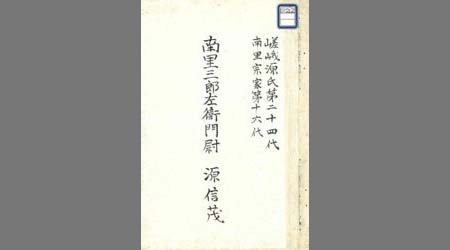 嵯峨源氏第二十四代
南里宗家第十六代
南里三郎左衛門尉 源信茂